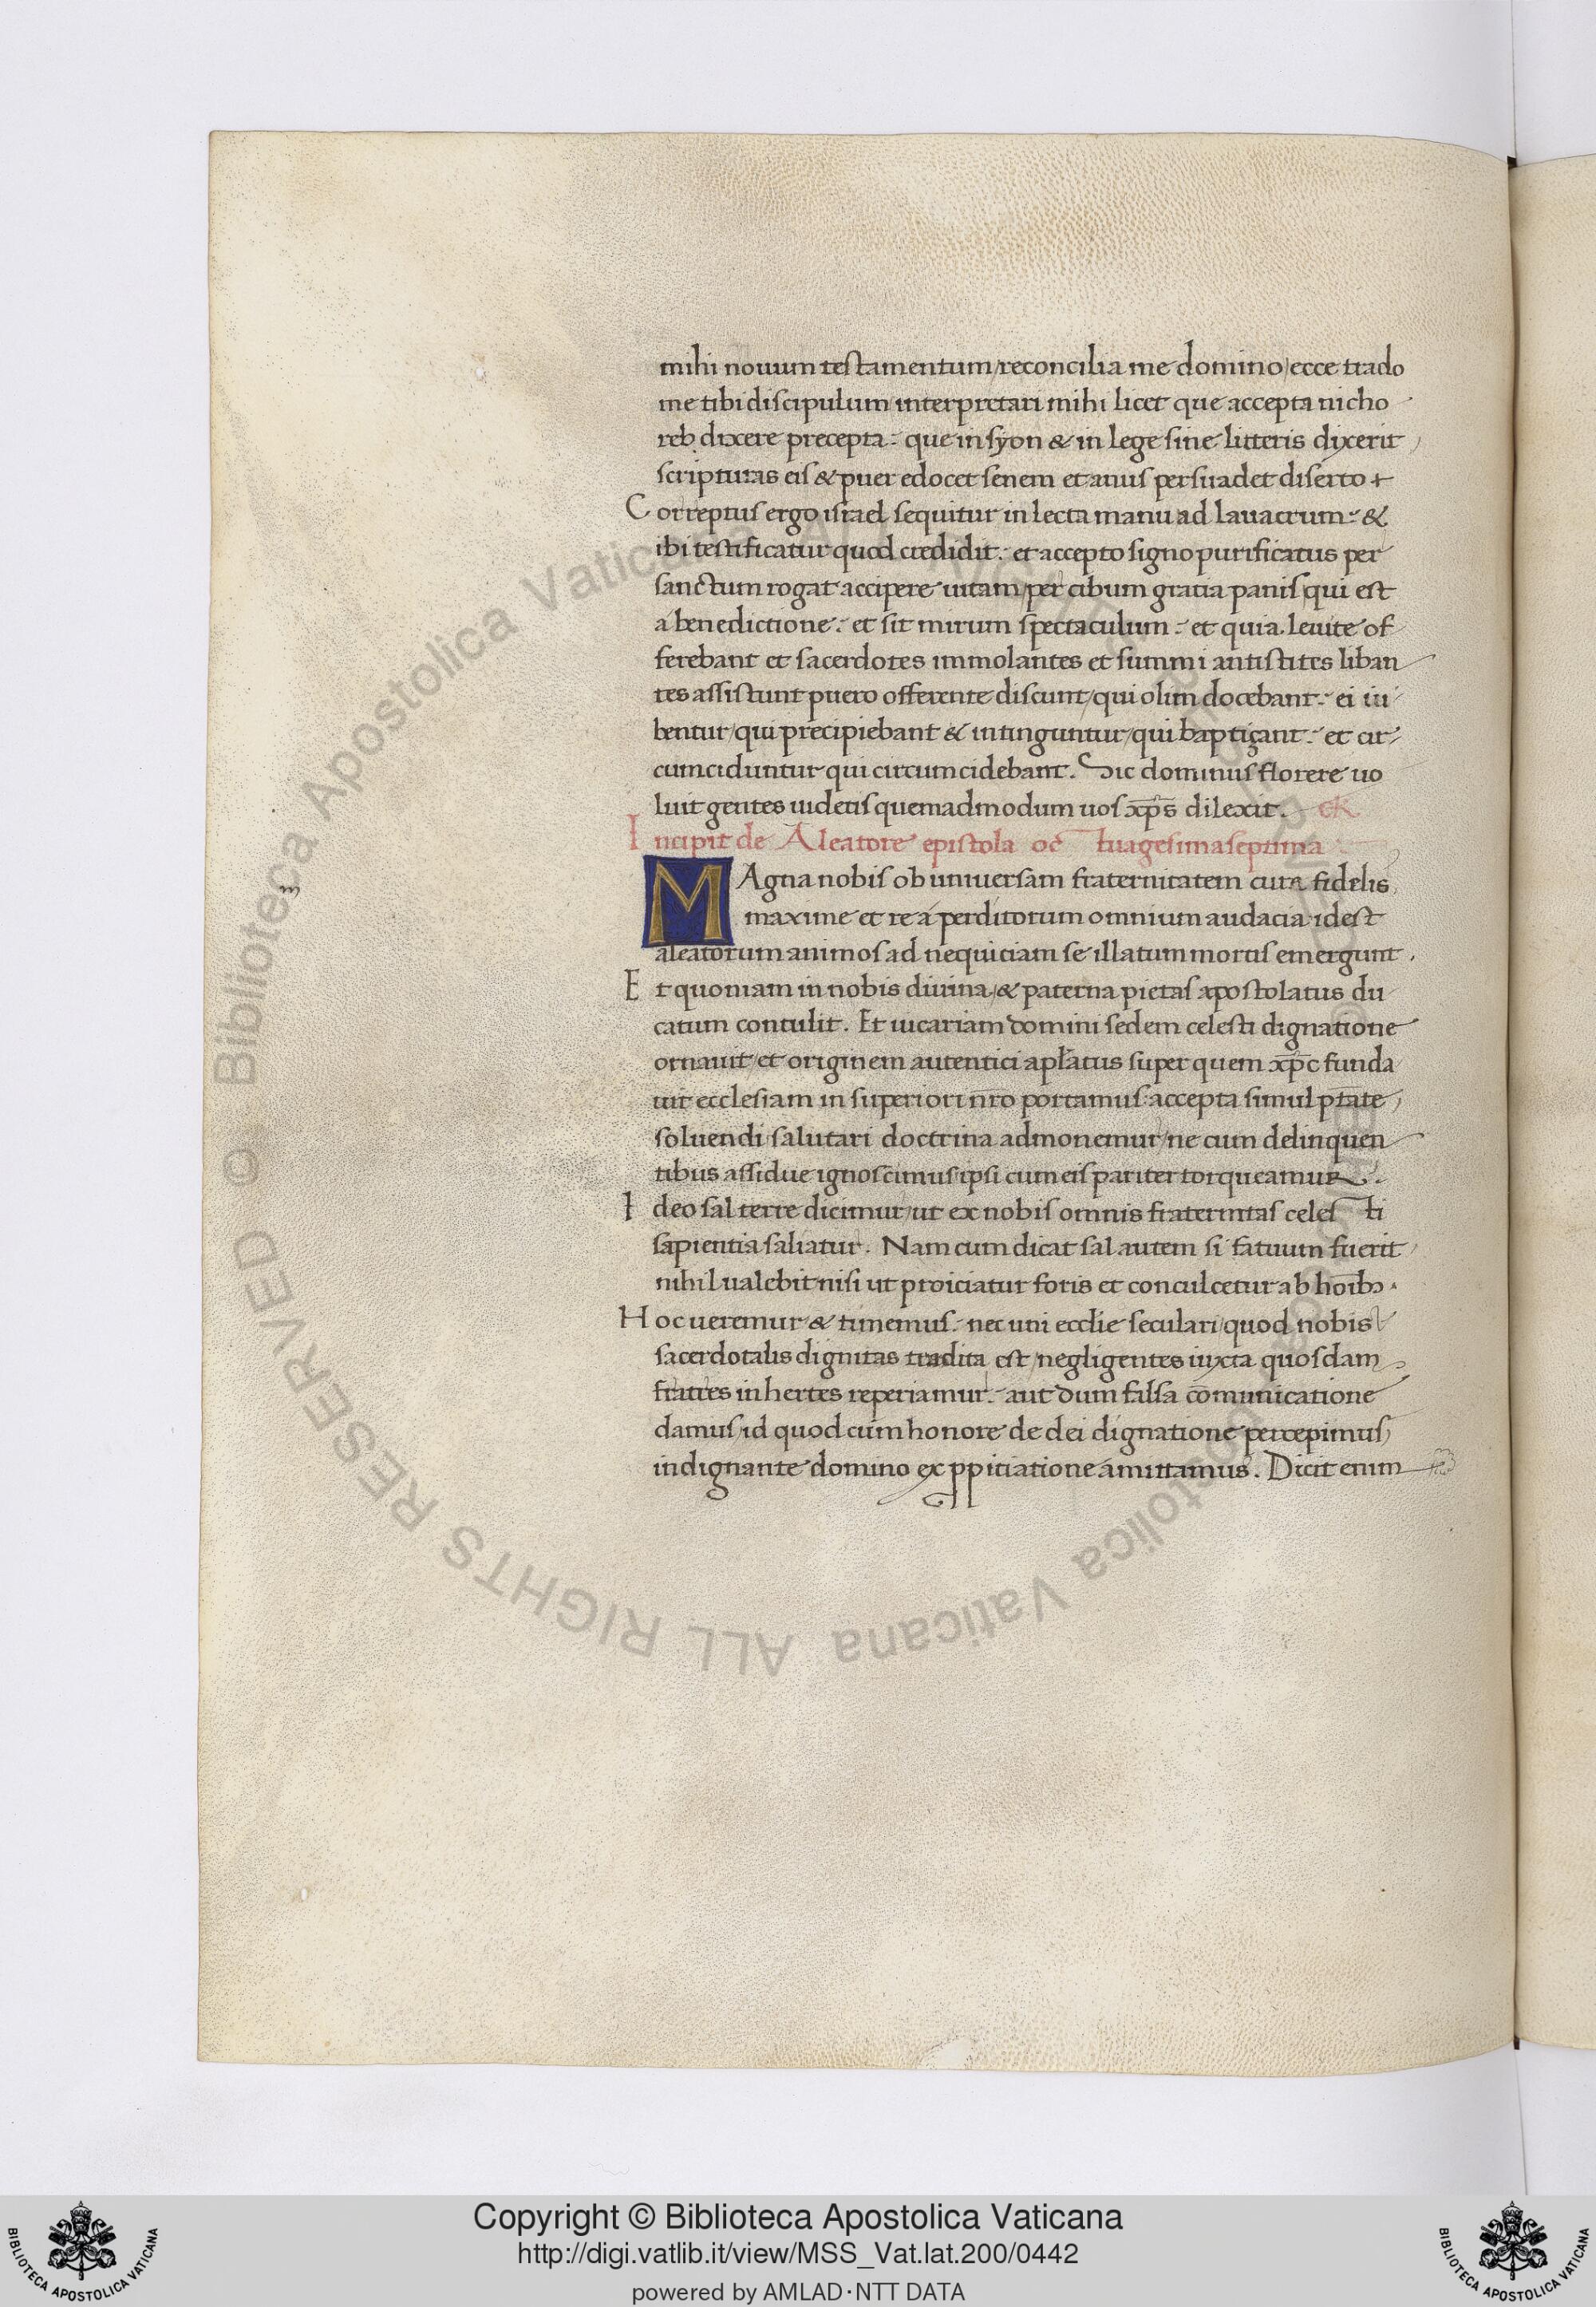 mihi nouum testamentum/reconcilia me domino/ecce trado
me tibi discipulum/interpretari mihi licet que accepta nicho
reb dixere precepta: que in syon & in lege sine litteris dixerit
scripturas eis & puer edocet senem et anus persuadet diserto +
Correptus ergo israel sequitur in lecta manu ad lauacrum: &
ibi testificatur quod credidit: et accepto signo purificatus per
sanctum rogat accipere uitam/per cibum gratia panis/qui est
a benedictione: et sit mirum spectaculum: et quia leuite of
ferebant et sacerdotes immolantes et summi antistites liban
tes assistunt puero offerente discunt/qui olim docebant: ei iu
bentur/qui precipiebant & intinguntur/qui baptiçant: et cir
cumciduntur qui circumcidebant. Sic dominus florere uo
luit gentes uidetis quemadmodum uos xp̅s dilexit.
Incipit de Aleatore epistola oc tuagesimaseptima
MAgna nobis ob uniuersam fraternitatem cura fidelis
maxime et re a perditorum omnium audacia idest
aleatorum animos ad nequiciam se illatum mortis emergunt.
Et quoniam in nobis diuina/& paterna pietas apostolatus du
catum contulit. Et uicariam domini sedem celesti dignatione
ornauit/et originem autentici apl̅atus super quem xp̅c funda
uit ecclesiam in superiori nr̅o portamus: accepta simul pt̅ate
soluendi salutari doctrina admonemur/ne cum delinquen
tibus assidue ignoscimus ipsi cum eis pariter torqueamur.
Ideo sal terre dicimur/ut ex nobis omnis fraternitas celes ti
sapientia saliatur. Nam cum dicat sal autem si fatuum fuerit
nihil ualebit nisi ut proiciatur foris et conculcetur ab hoi̅bꝫ.
Hoc ueremur & timemus: nec uni ecclie seculari/quod nobis
sacerdotalis dignitas tradita est/negligentes iuxta quosdam
fratres inhertes reperiamur: aut dum falsa co̅municatione
damus/id quod cum honore de dei dignatione percepimus
indignante domino ex ꝓpiciatione amittamus. Dicit enim
Copyright © Biblioteca Apostolica Vaticana
http://digi.vatlib.it/view/MSS_Vat.lat.200/0442
powered by AMLAD·NTT DATA